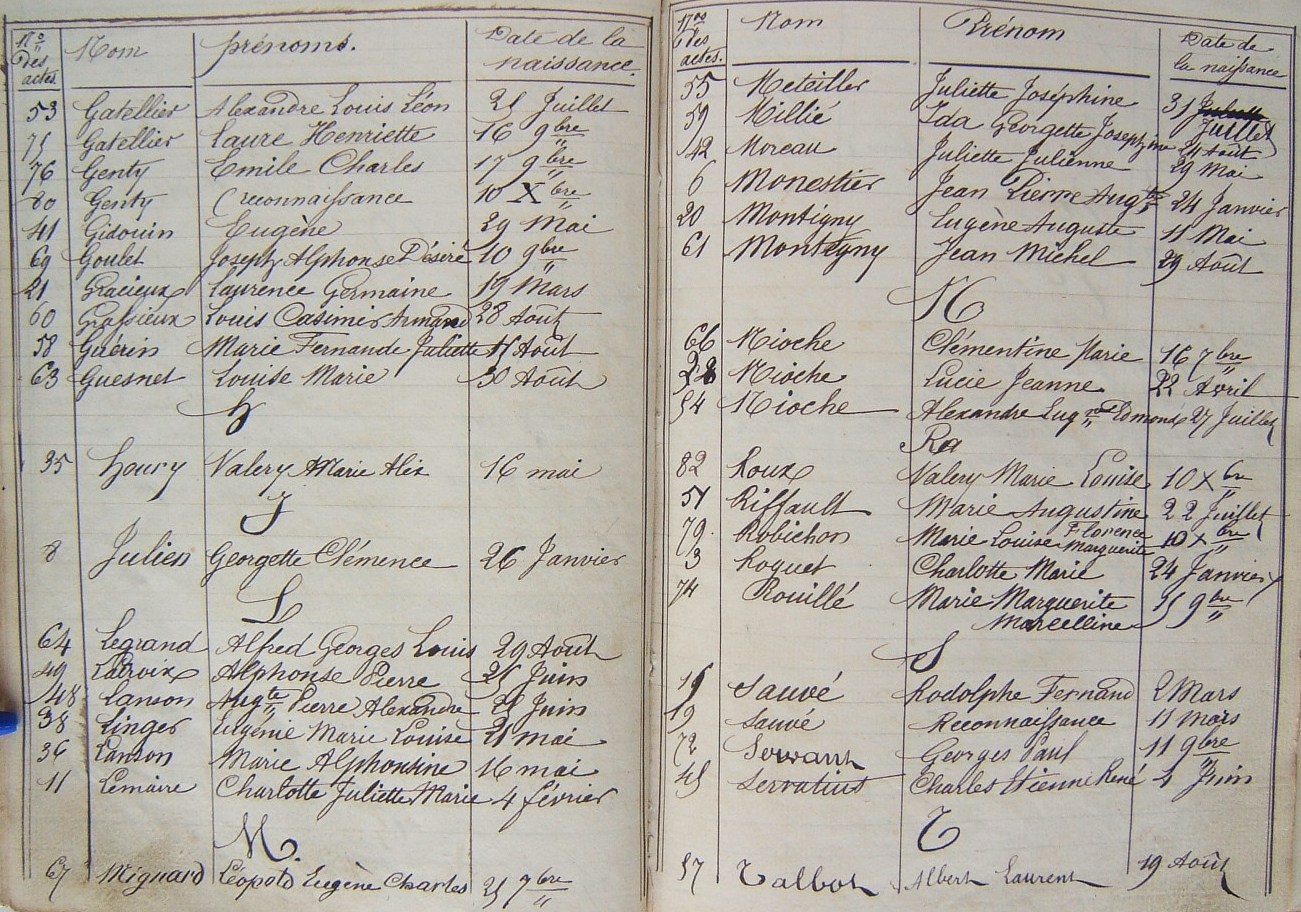 Nos des actes. Nom prénoms. Date de la naissance.
53 Gatellier Alexandre Louis Léon 25 Juillet
75 Gatellier Laure Henriette 16 9bre
76 Genty Emile Charles 17 9bre
80 Genty (reconnaissance 10 Xbre
41 Gidouin Eugène 29 Mai
69 Goulet Joseph Alphonse Désiré 10 9bre
21 Gracieux Laurence Germaine 19 Mars
60 Grassieux Louis Casimir Armand 28 Août
58 Guérin Marie Fernande Juliette Août
63 Guesnet Louise Marie 30 Août
H
35 Houry Valery Marie Alix 16 mai
J
8 Julien Georgette Clémence 26 Janvier
L
64 Legrand Alfred Georges Louis 29 Août
49 Latroix Alphonse Pierre 25 Juin
48 Lanson Augte Pierre Alexandre Juin
38 Linger Eugénie Marie Louise 21 mai
36 Lanson Marie Alphonsine 16 mai
11 Lemaire Charlotte Juliette Marie 4 février
M.
67 Mignard Léopold Eugène Charles 25 7bre
Nos des actes. Nom Prénom Date de la naissance
55 Meteiller Juliette Joséphine 31 Juillet
59 Millié Ida Georgette Joséphine Août
42 Moreau Juliette Julienne 29 Mai
6 Monestier Jean Pierre Augte 24 Janvier
20 Montigny Eugène Auguste 11 Mai
61 Montégny Jean Michel 29 Août
N
66 Nioche Clémentine Marie 16 7bre
28 Nioche Lucie Jeanne 22 Avril
54 Nioche Alexandre Edmond 27 Juillet
Ra
82 Roux Valery Marie Louise 10 Xbre
51 Riffault Marie Augustine 22 Juillet
79 Robichon Marie Louise Florence Marguerite 10 Xbre
3 Roquet Charlotte Marie 24 Janvier
74 Rouillé Marie Marguerite 15 9bre
Marcelline
S
15 Sauvé Rodolphe Fernand 2 Mars
19 Sauvé Reconnaissance 11 mars
72 Servant Georges Paul 11 9bre
45 Servatius Charles Etienne René 4 Juin
T
57 Talbot Albert Laurent 19 Août